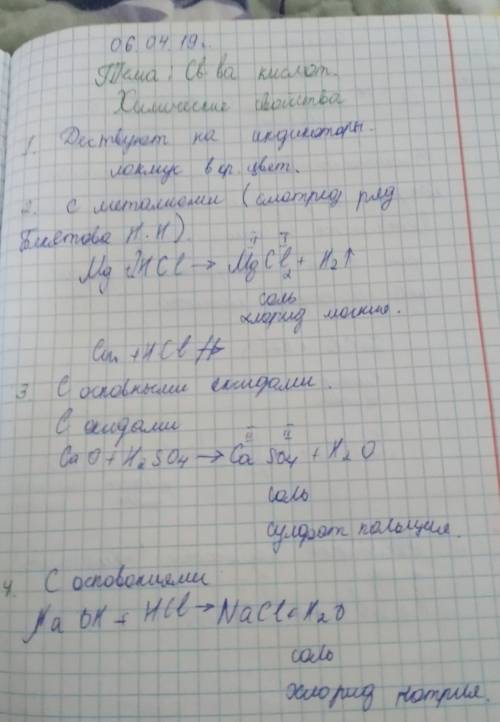 06.04.19г.
Тема: Св ва кислот.
Химические свойства
1. Действует на индикаторы.
лакмус в кр. цвет.
2. с металлами (смотред ряд
Бекетова Н.Н)
Mg 2HCl → MgCl₂ + H₂↑
II I
соль
хлорид магния.
Cu + HCl ↛
3 С основными оксидами.
С оксидами
CaO + H₂SO₄ → Ca SO₄ + H₂O
II II
соль
сулфат кальция.
4. С основаниями
Na OH + HCl → NaCl + H₂O
соль
хлорид натрия.